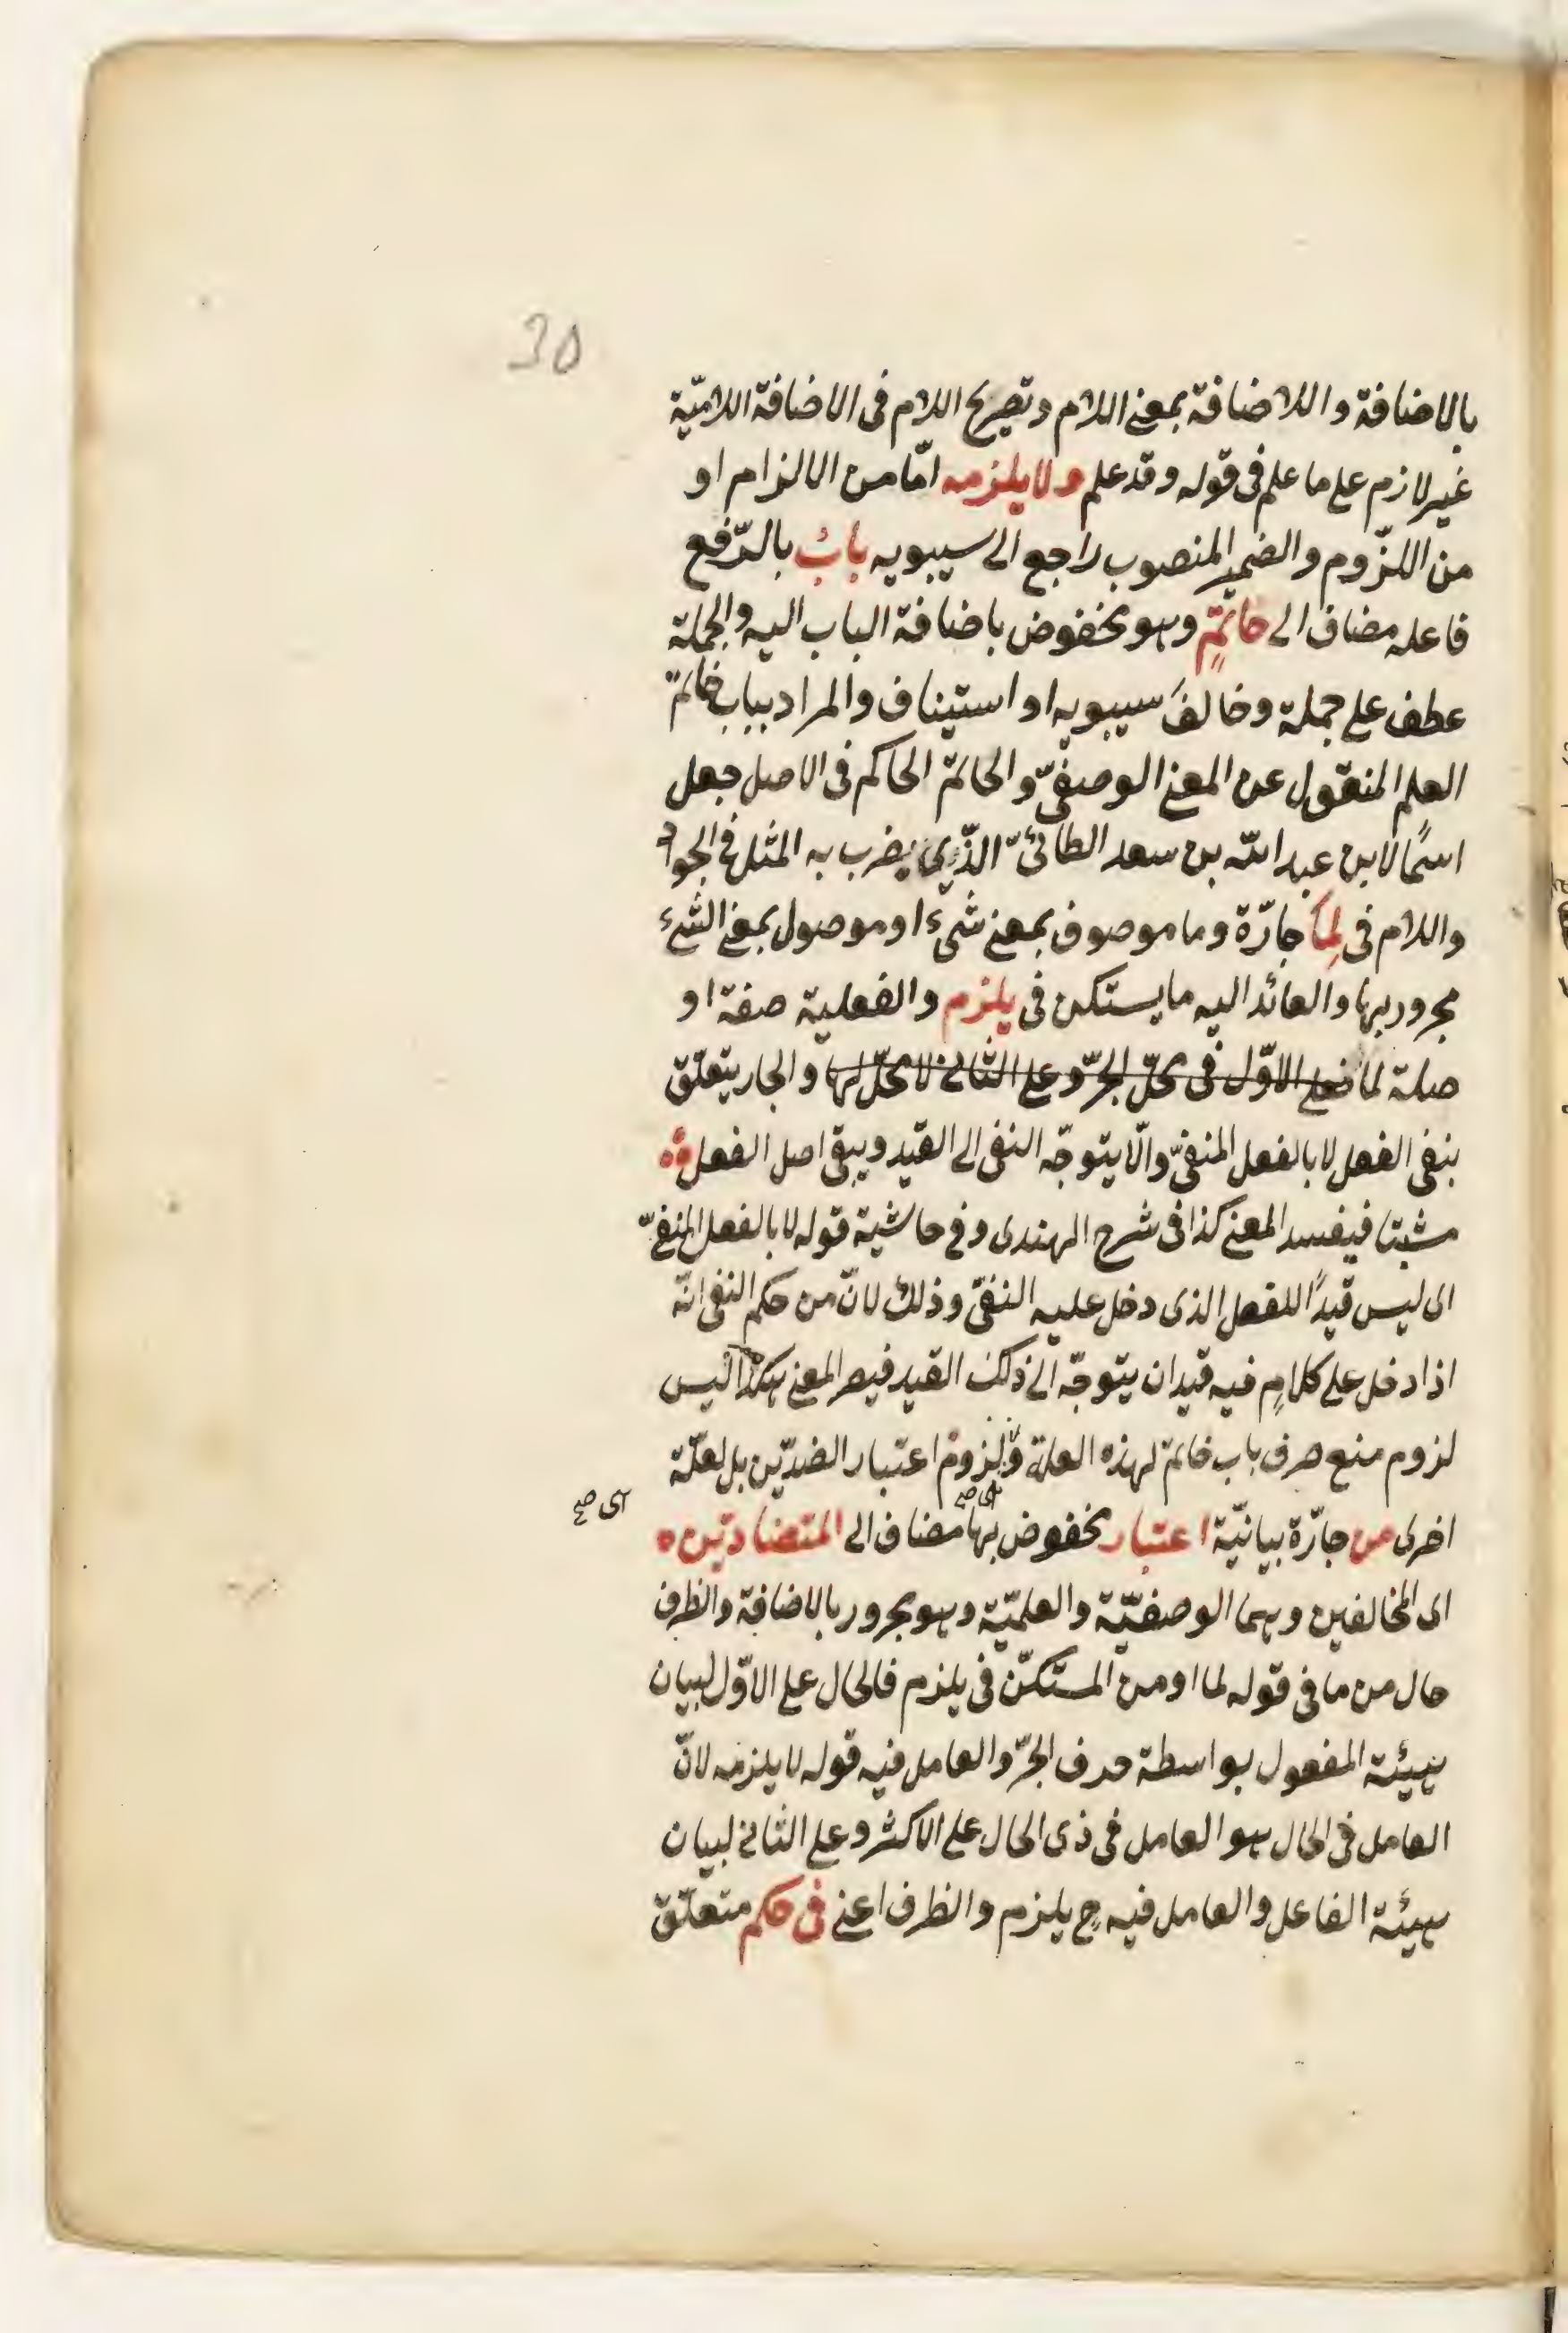 30
بالاضافة واللاضافة بمعنى اللام وتصريح اللام فى الاضافة اللاميّة
غير لازم على ما علم فى قوله وقد علم ولا يلزمه امّا من الالزام او
من اللزّوم والضمير المنصوب راجع الى سيبويه بابُ بالرّفع
فاعله مضاف الى حاتمٍ وهو مخفوض باضافة الباب اليه والجملة
عطف على جملة وخالفَ سيبويه او استيناف والمراد بباب خاتم
العلم المنقول عن المعنى الوصفىّ والحاتم الحاكم فى الاصل جعل
اسمًا لابن عبد الله بن سعد الطائىّ الذّى يضرب به المثل فى الجود
واللام فى لِمَا جارّة وما موصوف بمعنى شىء او موصول بمعنى الشىء
مجرور بها والعائد اليه ما يستكن فى يلزم والفعلية صفة او
صلة لما فعلى الاوّل فى محلّ الجرّ وعلى الثانى لا محلّ لها والجار يتعلّق
بنفى الفعل لا بالفعل المنفىّ والّا يتوجّه النفى الى القيد ويبقى اصل الفعل
مثبتا فيفسد المعنى كذا فى شرح الهندى وفى حاشية قوله لا بالفعل المنفىّ
اى ليس قيدًا للفعل الذى دخل عليه النفى وذلك لانّ من حكم النفى انّه
اذا دخل على كلامٍ فيه قيد ان يتوجّه الى ذلك القيد فيصر المعنى هكذا ليس
لزوم منع صرف باب خاتم لهذه العلة ولزوم اعتبار الضدّين بل لعلّة
اخرى من جارّة بيانيّة اعتبار مخفوض بها مضاف الى المتضادّين
اى صح
اى المخالفين وهما الوصفيّة والعلميّة وهو مجرور بالاضافة والظرف
حال من ما فى قوله لما او من المستكنّ فى يلزم فالحال على الاوّل لبيان
هيئة المفعول بواسطة حرف الجرّ والعامل فيه قوله لا يلزمه لانّ
العامل فى الحال هو العامل فى ذى الحال على الاكثر وعلى الثانى لبيان
هيئة الفاعل والعامل فيه ح يلزم والظرف اعنى فى حكم متعلّق